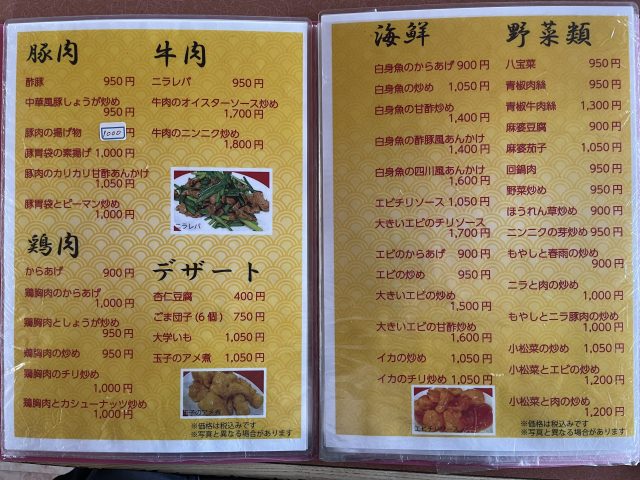 豚肉
酢豚 950円
中華風豚しょうが炒め
950円
豚肉の揚げ物 1000円
豚胃袋の素揚げ 1,000円
豚肉のカリカリ甘酢あんかけ
1,050円
豚胃袋とピーマン炒め
1,000円
鶏肉
からあげ 900円
鶏胸肉のからあげ
1,000円
鶏胸肉としょうが炒め
950円
鶏胸肉の炒め 950円
鶏胸肉のチリ炒め
1,000円
鶏胸肉とカシューナッツ炒め
1,000円
牛肉
ニラレバ 950円
牛肉のオイスターソース炒め
1,700円
牛肉のニンニク炒め
1,800円
ニラレバ
デザート
杏仁豆腐 400円
ごま団子(6個) 750円
大学いも 1,050円
玉子のアメ煮 1,050円
玉子のアメ煮
※価格は税込みです
※写真と異なる場合があります
海鮮
白身魚のからあげ 900円
白身魚の炒め 1,050円
白身魚の甘酢炒め
1,400円
白身魚の酢豚風あんかけ
1,400円
白身魚の四川風あんかけ
1,600円
エビチリソース 1,050円
大きいエビのチリソース
1,700円
エビのからあげ 900円
エビの炒め 950円
大きいエビの炒め
1,500円
大きいエビの甘酢炒め
1,600円
イカの炒め 1,050円
イカのチリ炒め 1,050円
エビチリ
野菜類
八宝菜 950円
青椒肉絲 950円
青椒牛肉絲 1,300円
麻婆豆腐 900円
麻婆茄子 1,050円
回鍋肉 950円
野菜炒め 950円
ほうれん草炒め 900円
ニンニクの芽炒め 950円
もやしと春雨の炒め
900円
ニラと肉の炒め
1,000円
もやしとニラ豚肉の炒め
1,000円
小松菜の炒め 1,050円
小松菜とエビの炒め
1,200円
小松菜と肉の炒め
1,200円
※価格は税込みです
※写真と異なる場合があります